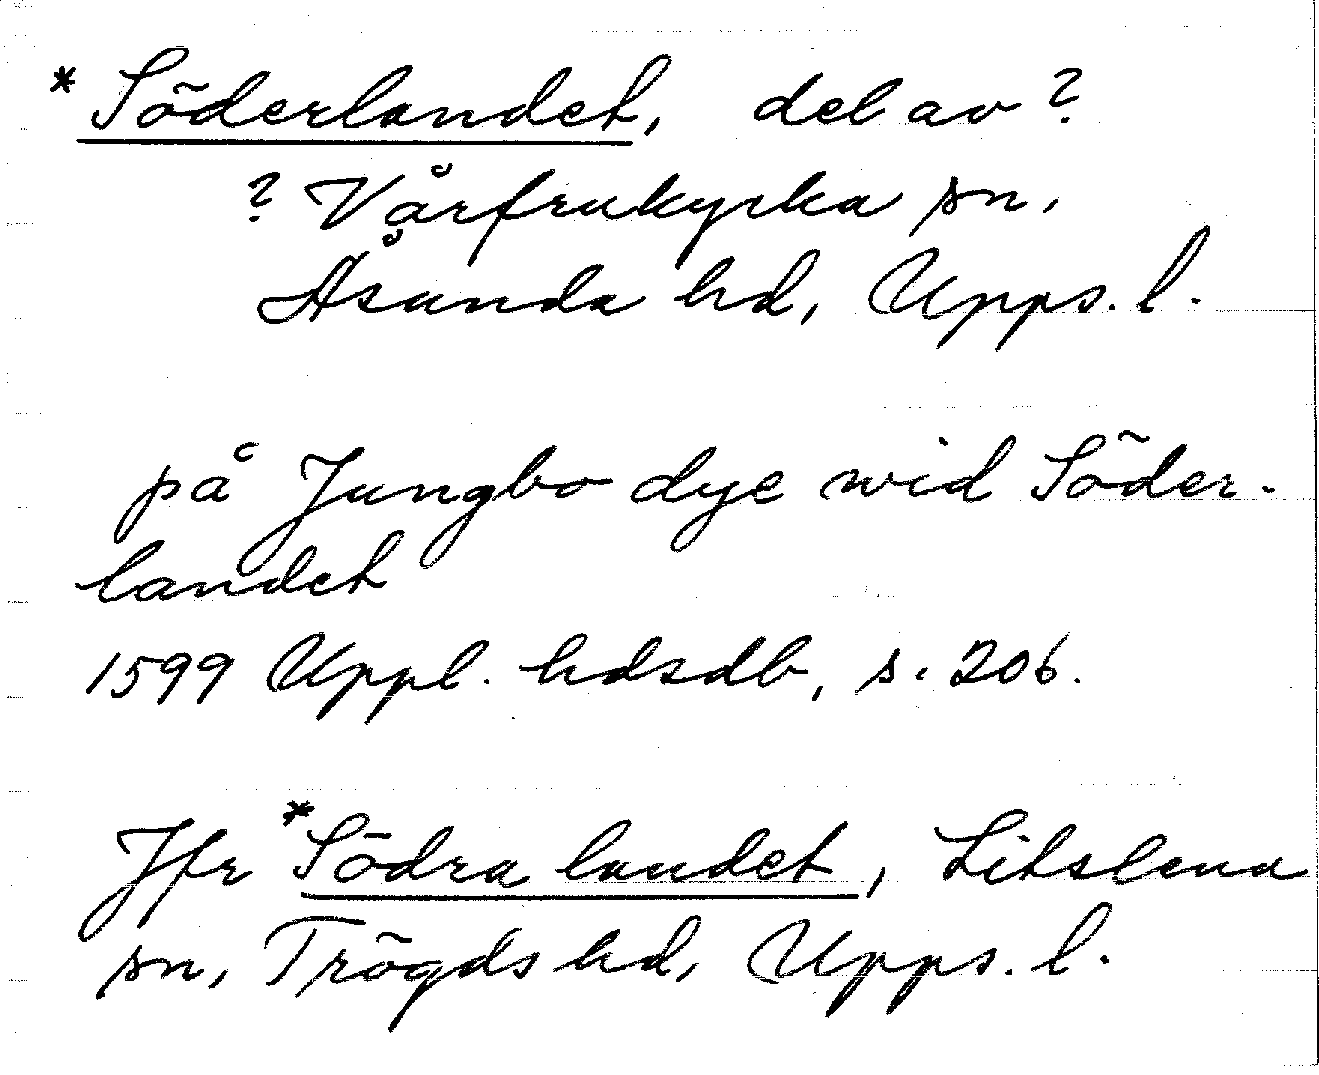 *Söderlandet, del av ?
? Vårfrukyrka sn,
Åsunda hd, Upps. l.
på Jungbo dye wid Söder-
landet
1599 Uppl. hdsdb, s. 206.
Jfr *Södra landet, Litslena
sn, Trögds hd, Upps. l.